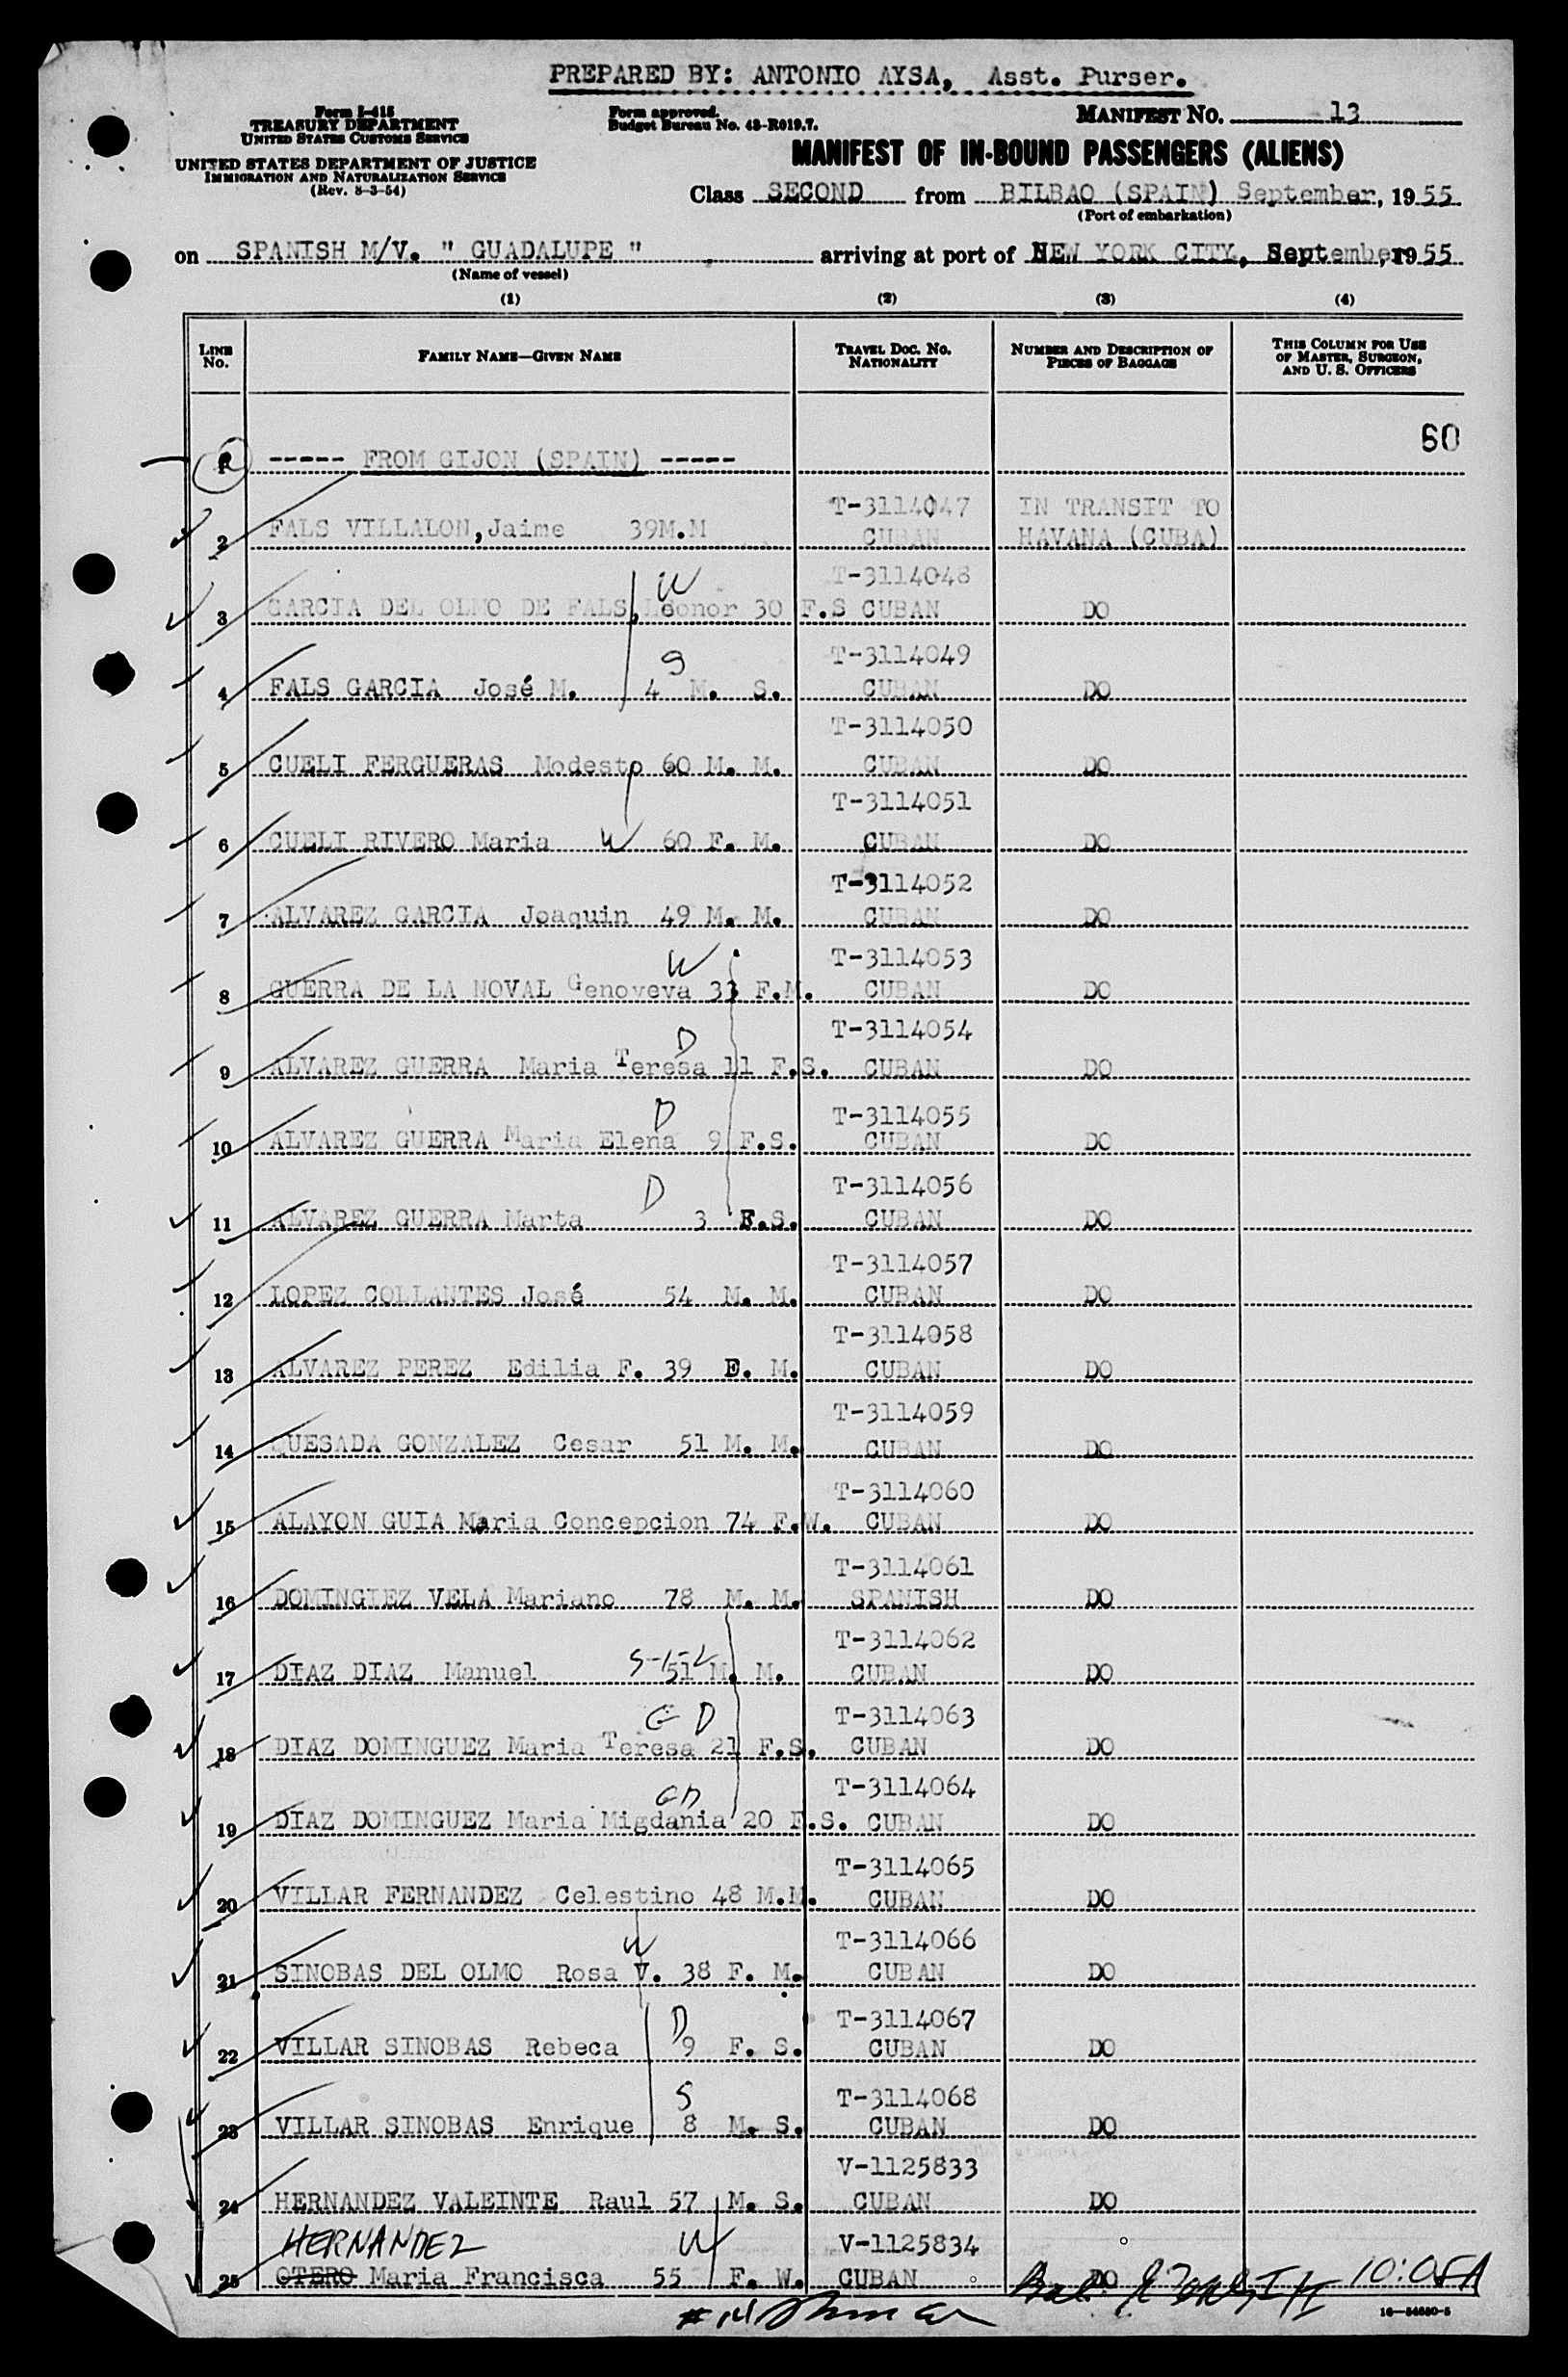 PREPARED BY: ANTONIO AYSA, Asst. Purser.
Form I-415
TREASURY DEPARTMENT
UNITED STATES CUSTOMS SERVICE
UNITED STATES DEPARTMENT OF JUSTICE
IMMIGRATION AND NATURALIZATION SERVICE
(Rev. 8-3-54)
Form approved.
Budget Bureau No. 43-R019.7.
MANIFEST NO. 13
MANIFEST OF IN-BOUND PASSENGERS (ALIENS)
Class SECOND from BILBAO (SPAIN) September, 1955
(Port of embarkation)
on SPANISH M/V. " GUADALUPE " arriving at port of NEW YORK CITY, September, 1955
(Name of vessel)
(1) (2) (3) (4)
LINE NO. FAMILY NAME—GIVEN NAME TRAVEL DOC. NO. NATIONALITY NUMBER AND DESCRIPTION OF PIECES OF BAGGAGE THIS COLUMN FOR USE OF MASTER, SURGEON, AND U. S. OFFICERS
60
----- FROM GIJON (SPAIN) -----
T-3114047 IN TRANSIT TO
2 FALS VILLALON, Jaime 39M.M CUBAN HAVANA (CUBA)
W T-3114048
3 GARCIA DEL OLMO DE FALS, Leonor 30 F.S CUBAN DO
S T-3114049
4 FALS GARCIA José M. 4 M. S. CUBAN DO
T-3114050
5 CUELI FERGUERAS Modesto 60 M. M. CUBAN DO
T-3114051
6 CUELI RIVERO Maria W 60 F. M. CUBAN DO
T-3114052
7 ALVAREZ GARCIA Joaquin 49 M. M. CUBAN DO
W T-3114053
8 GUERRA DE LA NOVAL Genoveva 33 F.M. CUBAN DO
D T-3114054
9 ALVAREZ GUERRA Maria Teresa 11 F.S. CUBAN DO
D T-3114055
10 ALVAREZ GUERRA Maria Elena 9 F.S. CUBAN DO
D T-3114056
11 ALVAREZ GUERRA Marta 3 F.S. CUBAN DO
T-3114057
12 LOPEZ COLLANTES José 54 M. M. CUBAN DO
T-3114058
13 ALVAREZ PEREZ Edilia F. 39 F. M. CUBAN DO
T-3114059
14 QUESADA GONZALEZ Cesar 51 M. M. CUBAN DO
T-3114060
15 ALAYON GUIA Maria Concepcion 74 F.W. CUBAN DO
T-3114061
16 DOMINGUEZ VELA Mariano 78 M. M. SPANISH DO
S-I-L T-3114062
17 DIAZ DIAZ Manuel 51 M. M. CUBAN DO
G D T-3114063
18 DIAZ DOMINGUEZ Maria Teresa 21 F.S. CUBAN DO
GD T-3114064
19 DIAZ DOMINGUEZ Maria Migdania 20 F.S. CUBAN DO
T-3114065
20 VILLAR FERNANDEZ Celestino 48 M.M. CUBAN DO
W T-3114066
21 SINOBAS DEL OLMO Rosa V. 38 F. M. CUBAN DO
D T-3114067
22 VILLAR SINOBAS Rebeca 9 F. S. CUBAN DO
S T-3114068
23 VILLAR SINOBAS Enrique 8 M. S. CUBAN DO
V-1125833
24 HERNANDEZ VALEINTE Raul 57 M. S. CUBAN DO
HERNANDEZ W V-1125834
25 OTERO Maria Francisca 55 F. W. CUBAN DO 10:05A
#14
16—54650-5